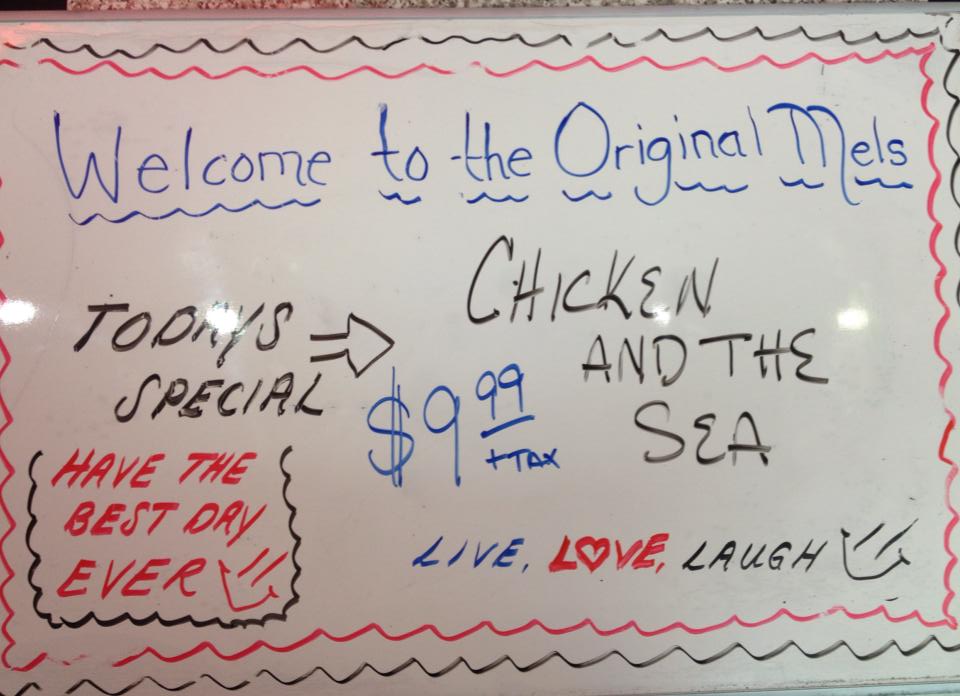 Welcome to the Original Mels
TODAYS
SPECIAL
CHICKEN
AND THE
SEA
$9.99
+TAX
HAVE THE
BEST DAY
EVER
LIVE, LOVE, LAUGH